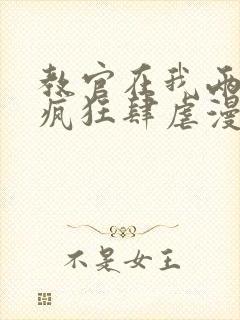 教官在我两
疯狂肆虐漫
不是女王